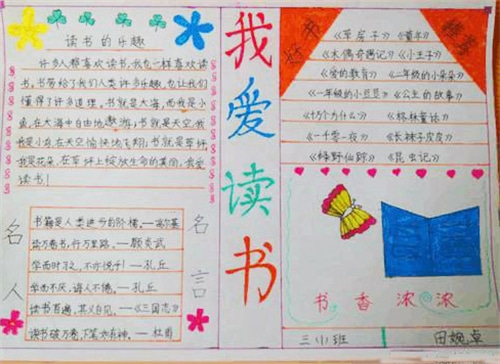 读书的乐趣
许多人都喜欢读书,我也一样喜欢读
书,书带给了我们人类许多乐趣,也让我们
懂得了许多道理,书就是大海,而我是小
鱼,在大海中自由地遨游;书就是天空,我
是小鸟,在天空愉快地飞翔;书就是草坪
我是花朵,在草坪上绽放生命的美丽,我爱
读书!
名人
名言
书籍是人类进步的阶梯。—高尔基
读万卷书,行万里路。—顾炎武
学而时习之,不亦悦乎!—孔丘
学而不厌,诲人不倦。—孔丘
读书百遍,其义自见。—《三国志》
读书破万卷,下笔如有神。—杜甫
我爱读书
好书
推荐
《草房子》《童年》
《木偶奇遇记》《小王子》
《爱的教育》《二年级的小朵朵》
《一年级的小豆豆》《公主的故事》
《十万个为什么》《格林童话》
《一千零一夜》《长袜子皮皮》
《绿野仙踪》《昆虫记》
书香浓浓
三(1)班
田婉卓